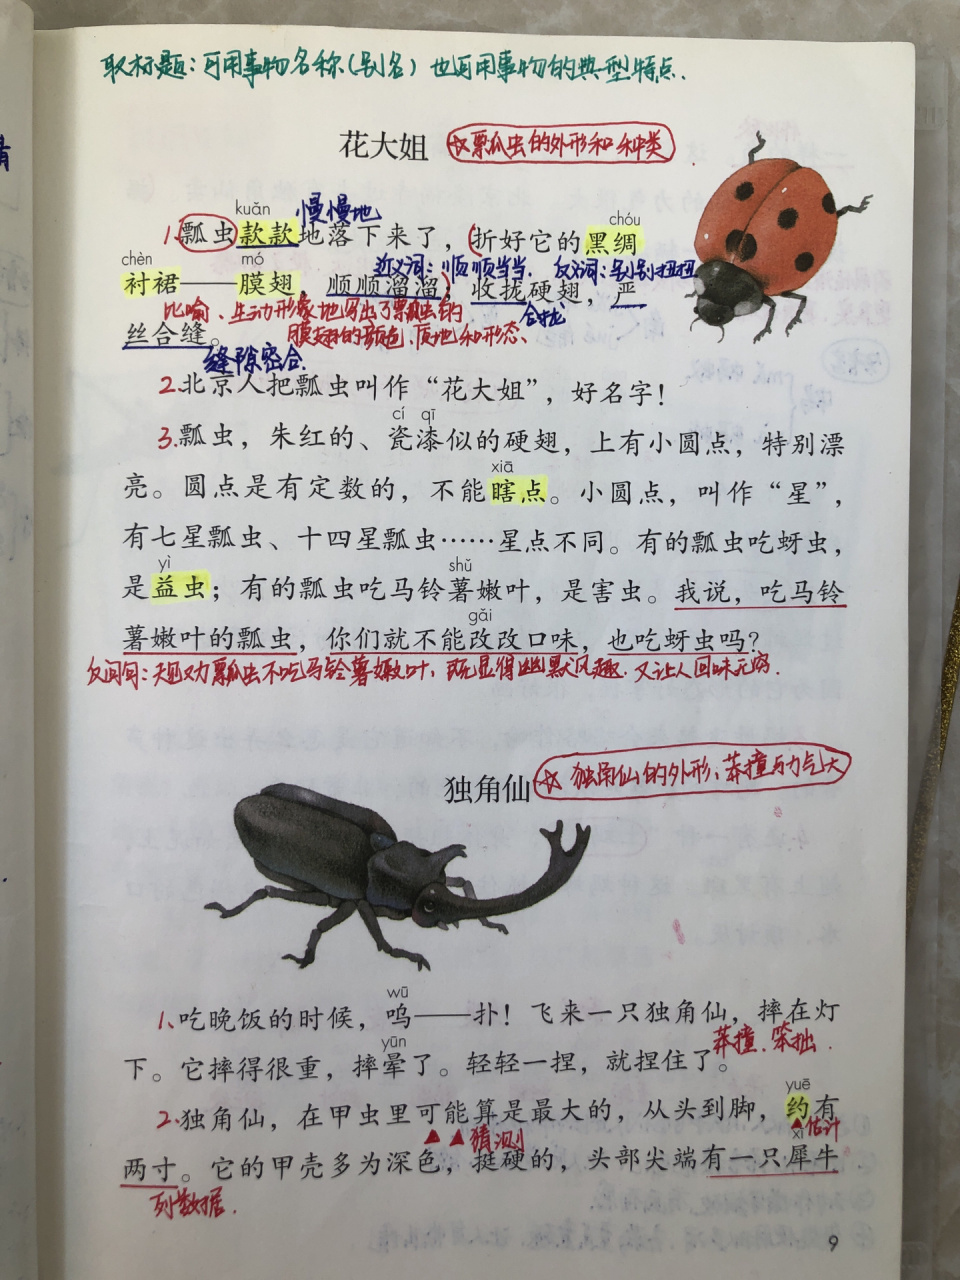 取标题：可用事物名称(别名) 也可用事物的典型特点.
花大姐 瓢虫的外形和种类
kuǎn 慢慢地 chóu
1.瓢虫款款地落下来了，折好它的黑绸
chèn mó 近义词：顺顺当当. 反义词：别别扭扭
衬裙——膜翅，顺顺溜溜；收拢硬翅，严
比喻、生动形象地写出了瓢虫的 合拢
丝合缝。 膜翅的颜色、质地和形态、
缝隙密合.
2.北京人把瓢虫叫作“花大姐”，好名字！
cí qī
3.瓢虫，朱红的、瓷漆似的硬翅，上有小圆点，特别漂
xiā
亮。圆点是有定数的，不能瞎点。小圆点，叫作“星”，
有七星瓢虫、十四星瓢虫……星点不同。有的瓢虫吃蚜虫，
yì shǔ
是益虫；有的瓢虫吃马铃薯嫩叶，是害虫。我说，吃马铃
gǎi
薯嫩叶的瓢虫，你们就不能改改口味，也吃蚜虫吗？
反问句：劝瓢虫不吃马铃薯嫩叶，既显得幽默风趣.又让人回味无穷.
独角仙 独角仙的外形、莽撞与力气大
wū
1、吃晚饭的时候，呜——扑！飞来一只独角仙，摔在灯
yūn 莽撞、笨拙.
下。它摔得很重，摔晕了。轻轻一捏，就捏住了。
yuē
2.独角仙，在甲虫里可能算是最大的，从头到脚，约有
猜测 xī 估计
两寸。它的甲壳多为深色，挺硬的，头部尖端有一只犀牛
列数据.
9